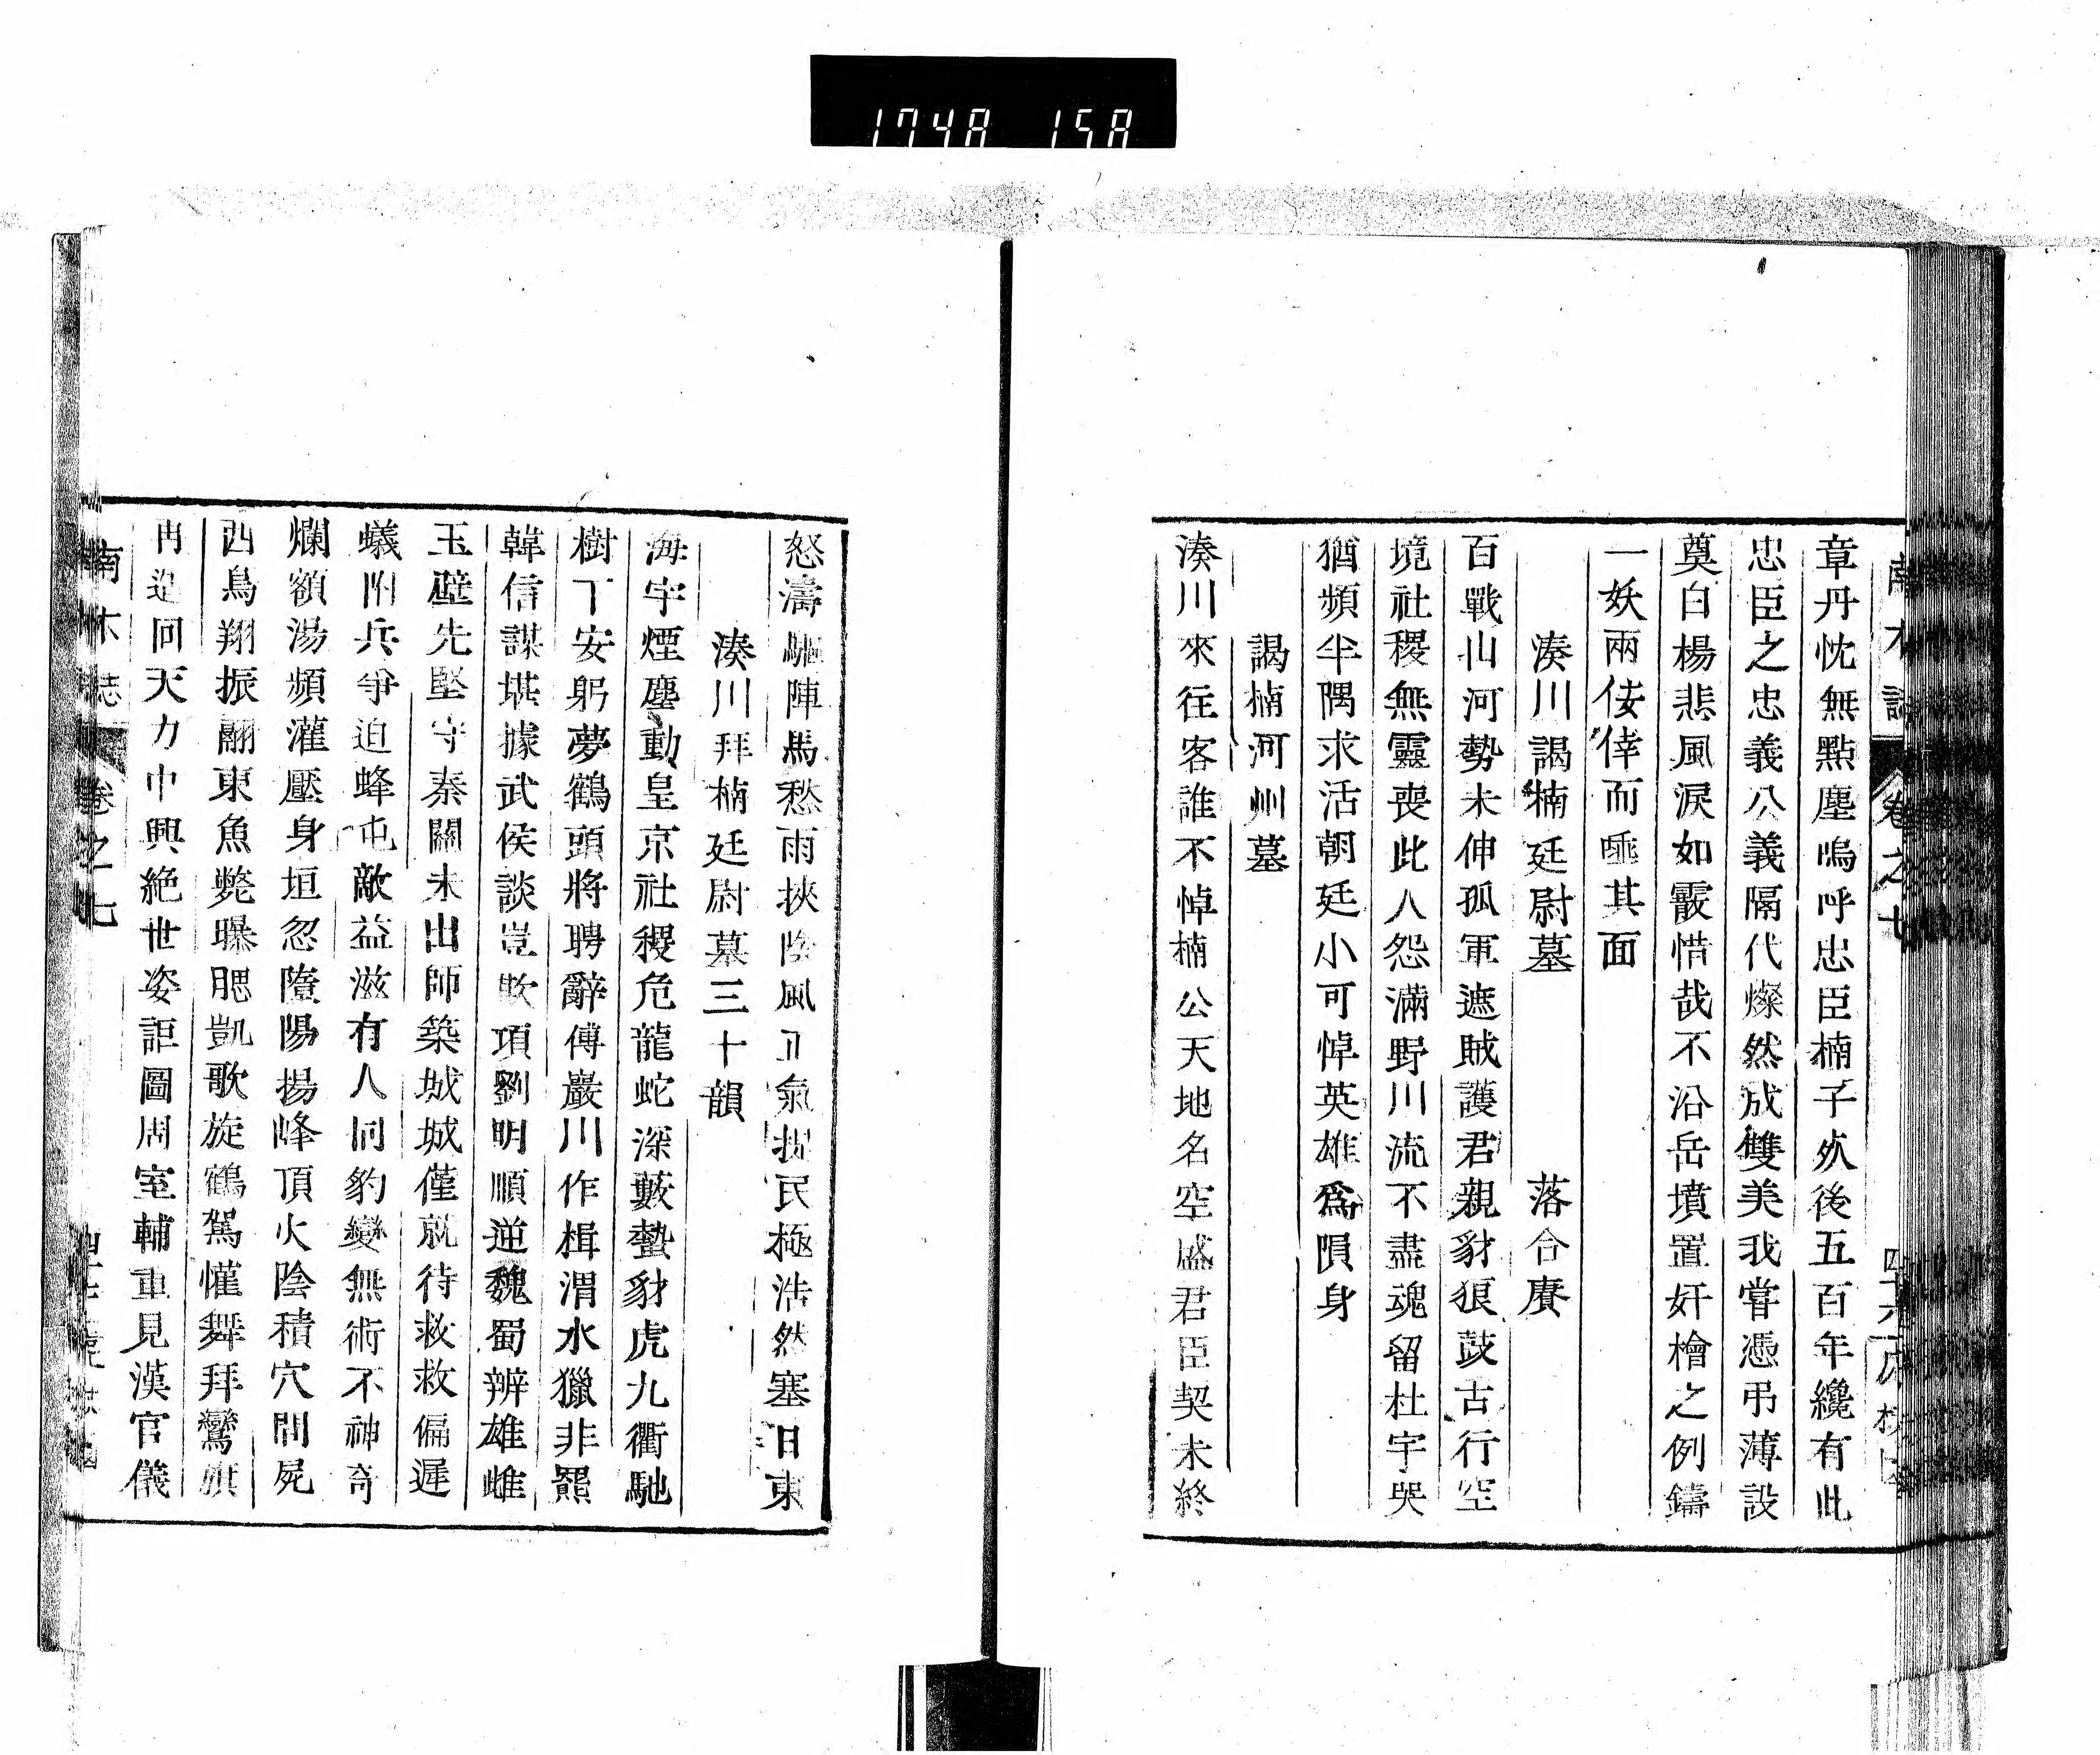 1748 158
南木誌 卷之七
章丹忱無點塵嗚呼忠臣楠子歿後五百年纔有此
忠臣之忠義公義隔代燦然成雙美我嘗憑弔薄設
奠白楊悲風淚如霰惜哉不沿岳墳置奸檜之例鑄
一妖兩佞倖而唾其面
湊川謁楠廷尉墓 落合賡
百戰山河勢未伸孤軍遮賊護君親豺狼鼓古行空
境社稷無靈喪此人怨滿野川流不盡魂留杜宇哭
猶頻半隅求活朝廷小可悼英雄爲隕身
謁楠河州墓
湊川來往客誰不悼楠公天地名空盛君臣契未終
怒濤驅陣馬愁雨挾陰風正氣扶民極浩然塞日東
湊川拜楠廷尉墓三十韻
海宇煙塵動皇京社稷危龍蛇深藪蟄豺虎九衢馳
樹下安躬夢鶴頭將聘辭傅巖川作楫渭水獵非羆
韓信謀堪據武侯談豈欺項劉明順逆魏蜀辨雄雌
玉壁先堅守秦關未出師築城城僅就待救救偏遲
蟻附兵爭迫蜂屯敵益滋有人同豹變無術不神奇
爛額湯頻灌壓身垣忽隳陽揚峰頂火陰積穴間屍
西鳥翔振翮東魚斃曝腮凱歌旋鶴駕懽舞拜鸞旂
再造回天力中興絕世姿詎圖周室輔重見漢官儀
南木誌 卷之七